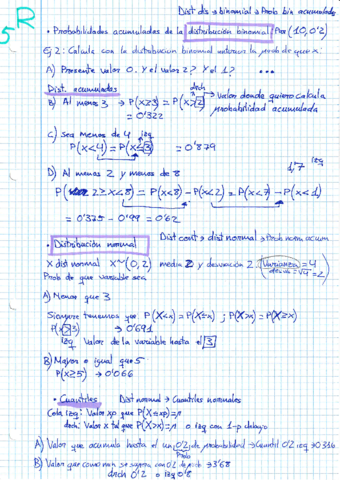 Dist dis → binomial → Prob bin acumulado
R
5
• Probabilidades acumuladas de la distribución binomial Par (10, 0'2)
Ej 2: Calcule con la distribución binomial anterior la prob de que x:
A) Presente valor 0. Y el valor 2? Y el 1? ...
Dist. acumuladas
B) Al menos 3 → P(x≥3) = P(x>2) → Valor donde quiero calcular probabilidad acumulada
dcha
= 0'322
C) Sea menos de 4 izq
P(x<4) = P(x≤3) = 0'879
D) Al menos 2 y menos de 8
1,7 izq
P(2≥x<8) = P(x<8) - P(x<2) = P(x≤7) - P(x≤1)
= 0'62
Dist cont → dist normal → Prob norm acum
• Distribución normal
X dist normal X~(0,2) media 2 y desviación 2. Varianza = 4
desv = √4 = 2
Prob de que variable sea
A) Menor que 3
Siempre tenemos que P(X<x) = P(X≤x) ; P(X>x) = P(X≥x)
P(x>3) → 0'691
izq Valor de la variable hasta el 3
B) Mayor o igual que 5
P(x≥5) → 0'066
• Cuantiles Dist normal → Cuantiles normales
Cola izq: Valor xp que P(X≤xp)=p
dech: Valor x tal que P(X>x)=p o izq con 1-p debajo
A) Valor que acumula hasta el un 0'2 de probabilidad → Cuantil 0'2 izq → 0'316
Prob
B) Valor que como max se supera con 0'2 de prob → 3'68
dech 0'2 o izq 0'8